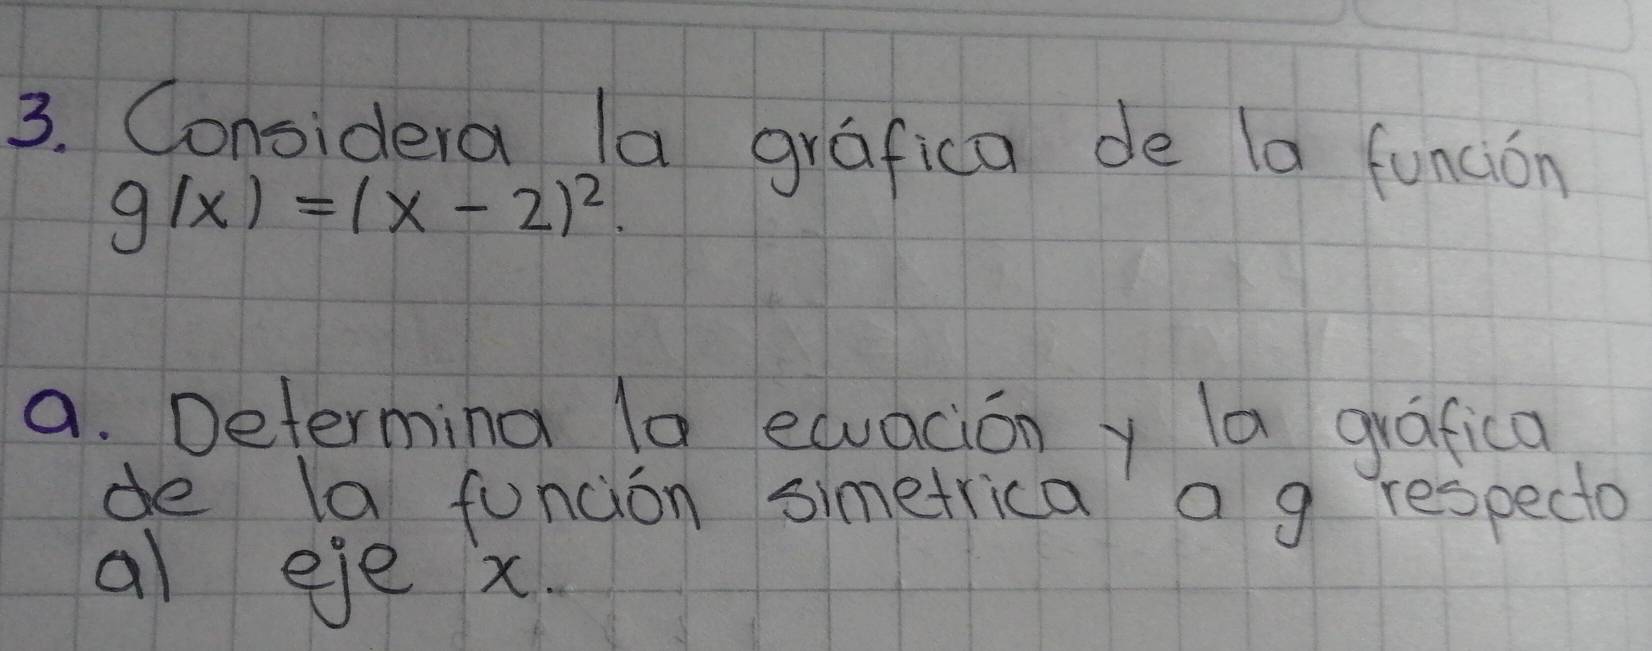 3. Considera la gráfica de la función
g(x) = (x - 2)².
a. Determina la ecuación y la gráfica
de la función simetrica a g respecto
al eje x.